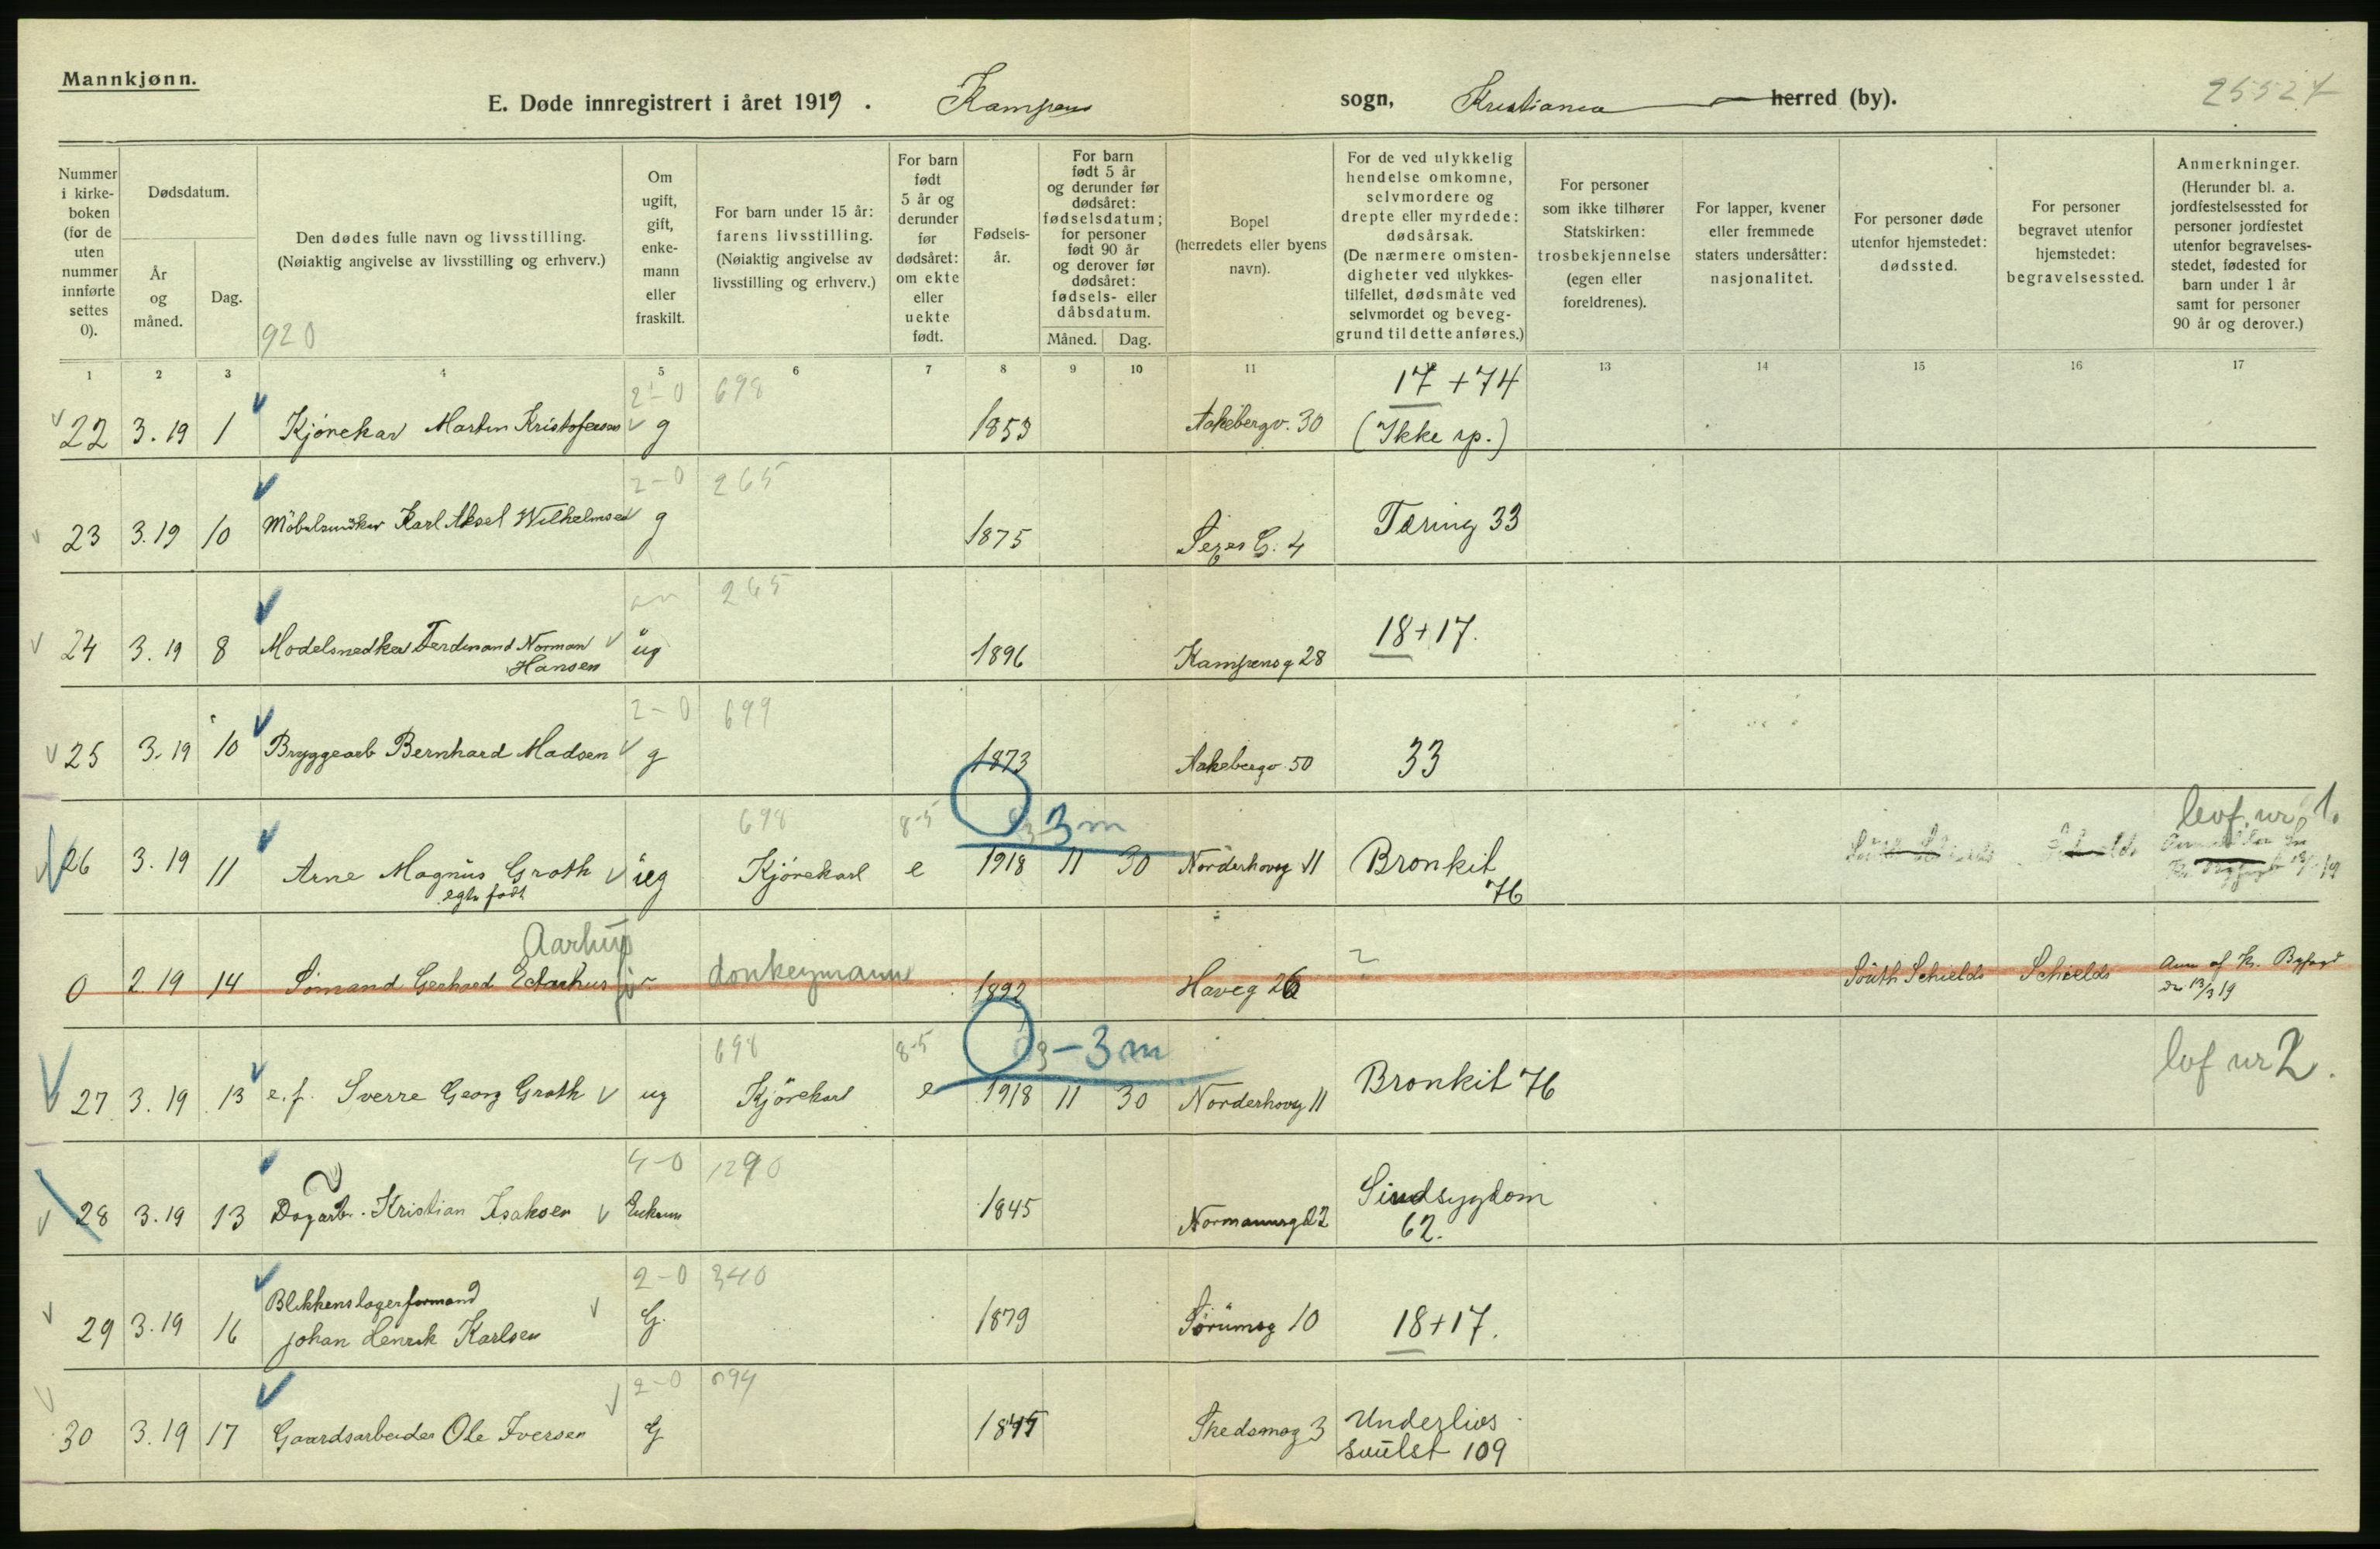 Mannkjønn.
E. Døde innregistrert i året 1919. Kampens sogn, Kristiania herred (by). 25527
Nummer i kirke-boken (for de uten nummer innførte settes 0).
Dødsdatum.
År og måned.
Dag.
Den dødes fulle navn og livsstilling. (Nøiaktig angivelse av livsstilling og erhverv.)
920
Om ugift, gift, enke-mann eller fraskilt.
For barn under 15 år: farens livsstilling. (Nøiaktig angivelse av livsstilling og erhverv.)
For barn født 5 år og derunder før dødsåret: om ekte eller uekte født.
Fødsels-år.
For barn født 5 år og derunder før dødsåret: fødselsdatum; for personer født 90 år og derover før dødsåret: fødsels- eller dåbsdatum.
Måned. Dag.
Bopel (herredets eller byens navn).
For de ved ulykkelig hendelse omkomne, selvmordere og drepte eller myrdede: dødsårsak. (De nærmere omsten-digheter ved ulykkes-tilfellet, dødsmåte ved selvmordet og beveg-grund til dette anføres.)
For personer som ikke tilhører Statskirken: trosbekjennelse (egen eller foreldrenes).
For lapper, kvener eller fremmede staters undersåtter: nasjonalitet.
For personer døde utenfor hjemstedet: dødssted.
For personer begravet utenfor hjemstedet: begravelsessted.
Anmerkninger. (Herunder bl. a. jordfestelsessted for personer jordfestet utenfor begravelses-stedet, fødested for barn under 1 år samt for personer 90 år og derover.)
1 2 3 4 5 6 7 8 9 10 11 12 13 14 15 16 17
2-0 698 17+74
22 3.19 1 Kjørekar Martin Kristofersen g 1853 Aakebergv. 30 (Ikke sp.)
2-0 265
23 3.19 10 Möbelsnedker Karl Aksel Wilhelmsen g 1875 Seges G. 4 Tæring 33
265
24 3.19 8 Modelsnedker Ferdinand Norman Hansen ug 1896 Kampensg 28 18+17.
2-0 699
25 3.19 10 Bryggearb Bernhard Madsen g 1873 Aakebergv 50 33
698 8-5 3 m
26 3.19 11 Arne Magnus Groth ug Kjørekarl e 1918 11 30 Norderhovg 11 Bronkit 76
egte født
Aarhus
0 2 19 14 Sømand Gerhard Edv Aarhus donkeymann 1892 Haveg 26 South Schields Schields Anm af Kr. Byfogd
13/3 19
698 8-5 3-3 m
27 3.19 13 e.f. Sverre Georg Groth ug Kjørekarl e 1918 11 30 Norderhovg 11 Bronkit 76 2.
4-0 1290
28 3.19 13 Dagarb. Kristian Isaksen Enkem 1845 Normannsg 22 Sindsygdom 62.
2-0 340
29 3.19 16 Blikkenslagerformand Johan Henrik Karlsen G. 1879 Sørumsg 10 18+17.
2-0 694
30 3.19 17 Gaardsarbeider Ole Iversen G 1845 Skedsmog 3 Underlivs svulst 109